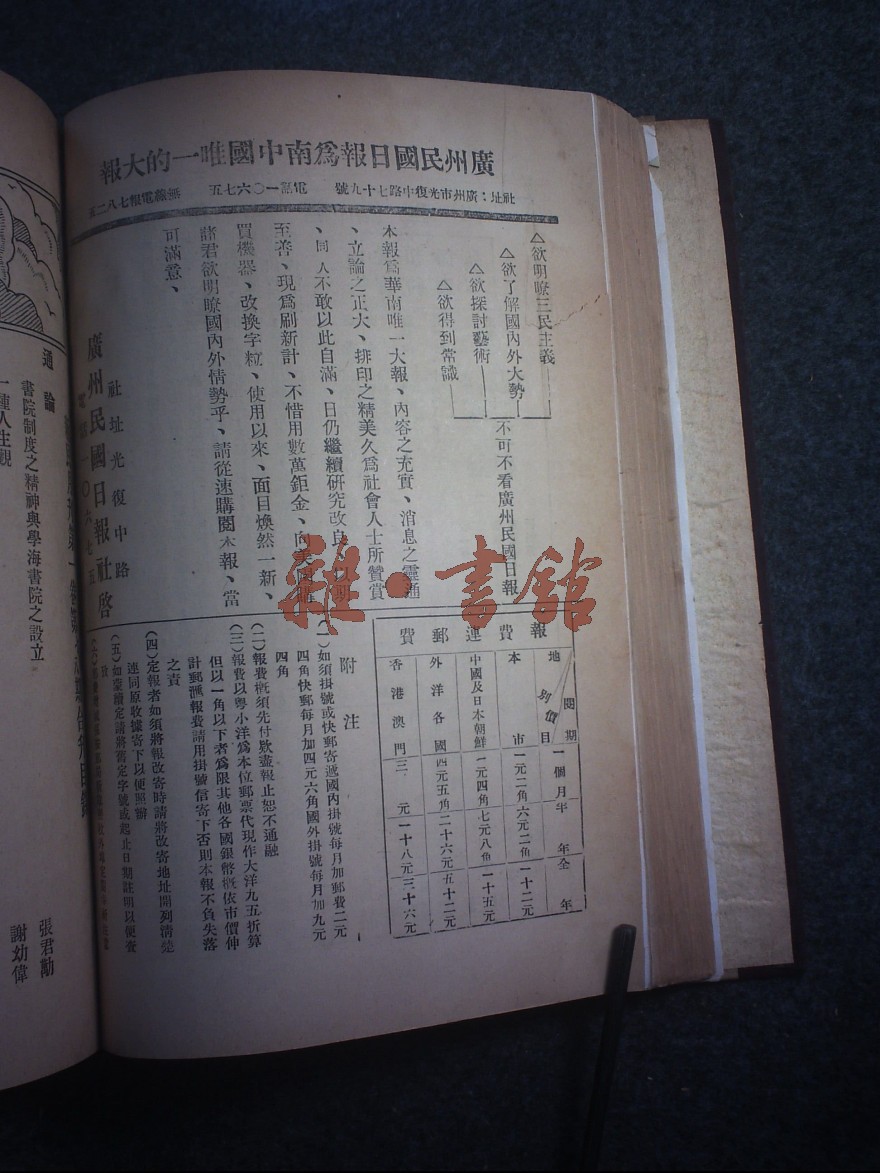 廣州民國日報爲南中國唯一的大報
社址：廣州市光復中路七十九號　電話一〇六七五　無線電報七八二
△欲明瞭三民主義
△欲了解國內外大勢
△欲探討藝術
△欲得到常識
不可不看廣州民國日報
本報爲華南唯一大報、內容之充實、消息之靈通
、立論之正大、排印之精美久爲社會人士所贊賞
、同人不敢以此自滿、日仍繼續研究改良、以期
至善、現爲刷新計、不惜用數萬鉅金、向美國購
買機器、改換字粒、使用以來、面目煥然一新、
諸君欲明瞭國內外情勢乎、請從速購閱本報、當
可滿意、
廣州民國日報社啓
社址光復中路
電話一〇六七五
報費連郵費
地別　價目　閱期　一個月　半年　全年
本市　一元二角　六元二角　十二元
中國及日本朝鮮　一元四角　七元八角　十五元
外洋各國　四元五角　二十六元　五十二元
香港澳門　三元　十八元　三十六元
附注
(一)如須掛號或快郵寄遞國內掛號每月加郵費二元
四角快郵每月加四元六角國外掛號每月加九元
四角
(二)報費概須先付欵盡報止恕不通融
(三)報費以粤小洋爲本位郵票代現作大洋九五折算
但以一角以下者爲限其他各國銀幣概依市價伸
計郵滙報費請用掛號信寄下否則本報不負失落
之責
(四)定報者如須將報改寄時請將改寄地址開列清楚
連同原收據寄下以便照辦
(五)如蒙續定請將舊定字號或起止日期註明以便查
通論
書院制度之精神與學海書院之設立
張君勱
一種人生觀
謝幼偉
雜·書館